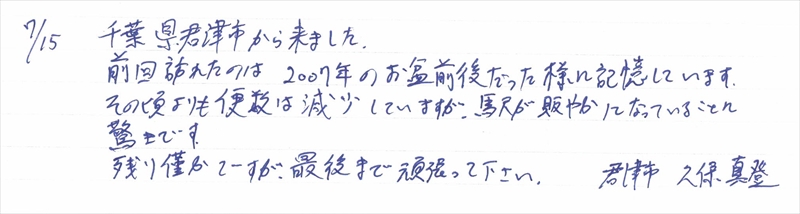 7/15 千葉県君津市から来ました。
前回訪れたのは 2007年のお盆前後だった様に記憶しています。
その頃よりも便数は減少していますが、駅が賑やかになっていることに
驚きです。
残り僅かですが、最後まで頑張って下さい。 君津市 久保真登